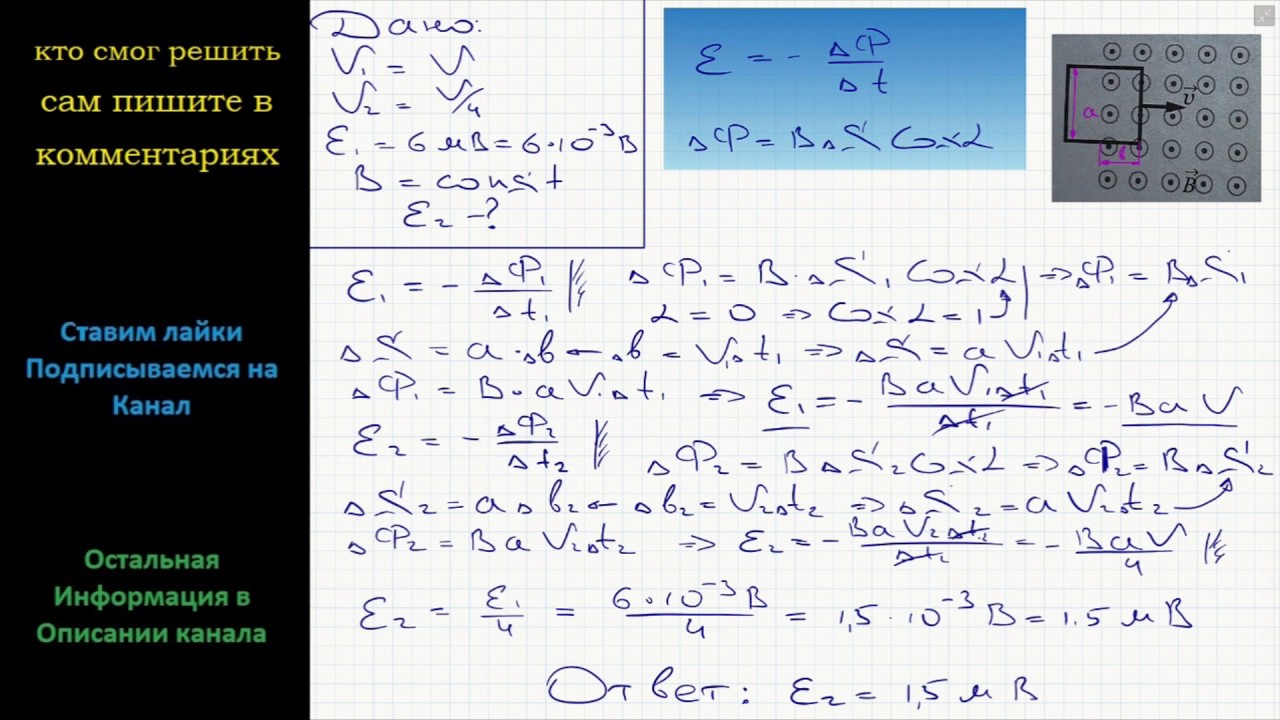 кто смог решить
сам пишите в
комментариях
Ставим лайки
Подписываемся на
Канал
Остальная
Информация в
Описании канала
Дано:
V₁ = V
V₂ = V/4
ℰ₁ = 6 мВ = 6·10⁻³ В
B = const
ℰ₂ - ?
ℰ = - ΔΦ/Δt
ΔΦ = BΔS cosα
a
v
в
B
ℰ₁ = - ΔΦ₁/Δt₁ ΔΦ₁ = B·ΔS₁ cosα | => ΔΦ₁ = BΔS₁
α = 0 => cosα = 1
ΔS = a·Δв ← Δв = V₁Δt₁ => ΔS = aV₁Δt₁
ΔΦ₁ = B·aV₁Δt₁ => ℰ₁ = - BaV₁Δt₁/Δt₁ = - BaV
ℰ₂ = - ΔΦ₂/Δt₂ ΔΦ₂ = BΔS₂cosα => ΔΦ₂ = BΔS₂
ΔS₂ = aΔв₂ ← Δв₂ = V₂Δt₂ => ΔS₂ = aV₂Δt₂
ΔΦ₂ = BaV₂Δt₂ => ℰ₂ = - BaV₂Δt₂/Δt₂ = - BaV/4
ℰ₂ = ℰ₁/4 = 6·10⁻³В/4 = 1,5·10⁻³ В = 1.5 мВ
Ответ: ℰ₂ = 1,5 мВ